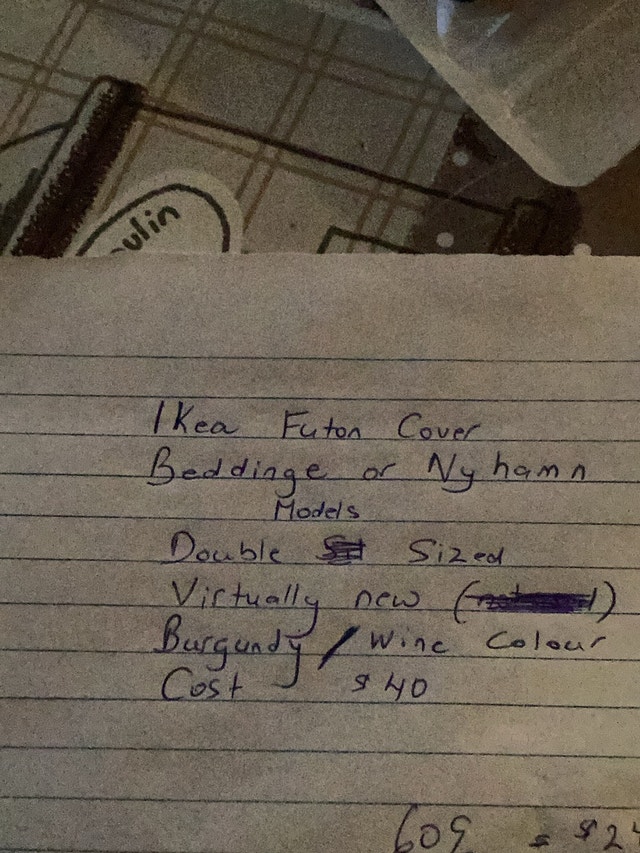 ulin
Ikea Futon Cover
Beddinge or Nyhamn
Models
Double Sized
Virtually new ( )
Burgundy / Wine Colour
Cost $40
609 = $2